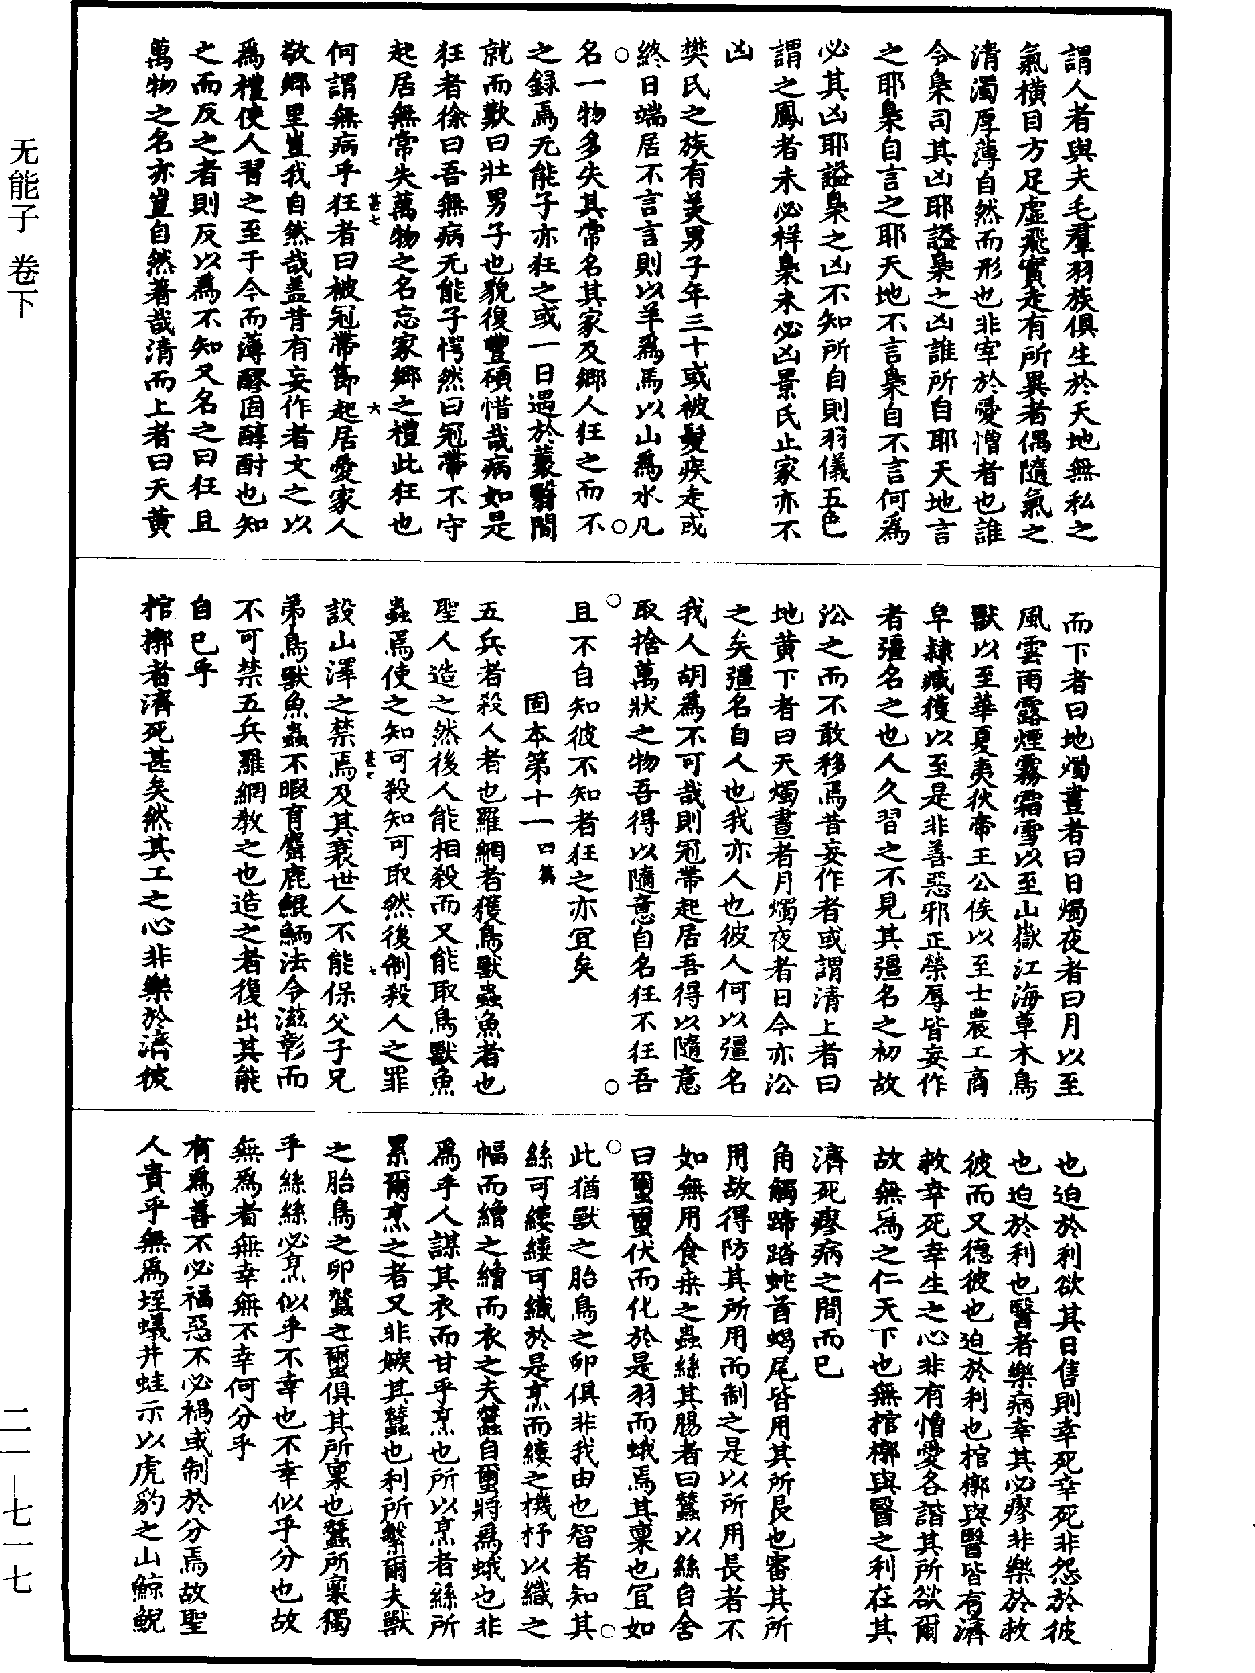 无能子 卷下
謂人者與夫毛羣羽族俱生於天地無私之
氣橫目方足虛飛實走有所異者偶隨氣之
清濁厚薄自然而形也非宰於愛憎者也誰
令梟司其凶耶謚梟之凶誰所自耶天地言
之耶梟自言之耶天地不言梟自不言何爲
必其凶耶謚梟之凶不知所自則羽儀五色
謂之鳳者未必祥梟未必凶景氏止家亦不
凶
樊氏之族有美男子年三十或被髮疾走或
終日端居不言言則以羊爲馬以山爲水凡
名一物多失其常名其家及鄉人狂之而不
之録焉无能子亦狂之或一日遇於叢翳間
就而歎曰壯男子也貌復豐碩惜哉病如是
狂者徐曰吾無病无能子愕然曰冠帶不守
起居無常失萬物之名忘家鄉之禮此狂也
甚七 六
何謂無病乎狂者曰被冠帶節起居愛家人
敬鄉里豈我自然哉蓋昔有妄作者文之以
爲禮使人習之至于今而薄醪固醇酎也知
之而反之者則反以爲不知又名之曰狂且
萬物之名亦豈自然著哉清而上者曰天黄
而下者曰地燭晝者曰日燭夜者曰月以至
風雲雨露煙霧霜雪以至山嶽江海草木鳥
獸以至華夏夷狄帝王公侯以至士農工商
皁隸臧獲以至是非善惡邪正榮辱皆妄作
者彊名之也人久習之不見其彊名之初故
沿之而不敢移焉昔妄作者或謂清上者曰
地黄下者曰天燭晝者月燭夜者日今亦沿
之矣彊名自人也我亦人也彼人何以彊名
我人胡爲不可哉則冠帶起居吾得以隨意
取捨萬狀之物吾得以隨意自名狂不狂吾
且不自知彼不知者狂之亦宜矣
固本第十一 四篇
五兵者殺人者也羅網者獲鳥獸蟲魚者也
聖人造之然後人能相殺而又能取鳥獸魚
蟲焉使之知可殺知可取然後制殺人之罪
甚七 七
設山澤之禁焉及其衰世人不能保父子兄
弟鳥獸魚蟲不暇育麛鹿鯤鮞法令滋彰而
不可禁五兵羅網教之也造之者復出其能
自已乎
棺槨者濟死甚矣然其工之心非樂於濟彼
也迫於利欲其日售則幸死幸死非怨於彼
也迫於利也醫者樂病幸其必瘳非樂於救
彼而又德彼也迫於利也棺槨與醫皆有濟
救幸死幸生之心非有憎愛各諧其所欲爾
故無爲之仁天下也無棺槨與醫之利在其
濟死瘳病之間而已
角觸蹄踏蛇首蝎尾皆用其所長也審其所
用故得防其所用而制之是以所用長者不
如無用食桒之蟲絲其腸者曰蠶以絲自舍
曰蠒蠒伏而化於是羽而蛾焉其稟也宜如
此猶獸之胎鳥之卵俱非我由也智者知其
絲可縷縷可織於是烹而縷之機杼以織之
幅而繒之繒而衣之夫蠶自蠒將爲蛾也非
爲乎人謀其衣而甘乎烹也所以烹者絲所
累爾烹之者又非嫉其蠶也利所繫爾夫獸
之胎鳥之卵蠶之蠒俱其所稟也蠶所稟獨
乎絲絲必烹似乎不幸也不幸似乎分也故
無爲者無幸無不幸何分乎
有爲善不必福惡不必禍或制於分焉故聖
人貴乎無爲垤蟻井蛙示以虎豹之山鯨鯢
二一—七一七